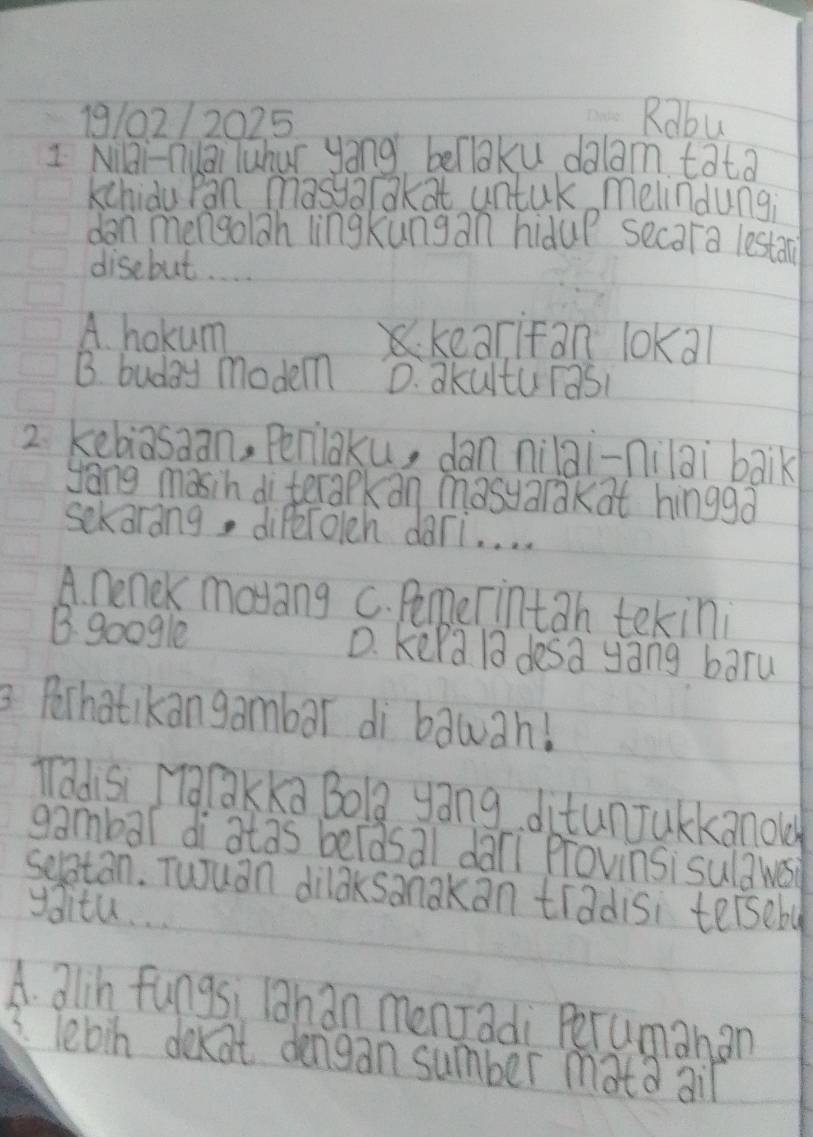 19/02/2025 Rabu
1. Nilai-nilai luhur yang berlaku dalam tata
kehidupan masyarakat untuk melindungi
dan mengolah lingkungan hidup secara lestari
disebut....
A. hokum C. kearifan lokal
B. buday modern D. akulturasi
2. kebiasaan, Perilaku, dan nilai-nilai baik
yang masih di terapkan masyarakat hingga
sekarang, diperoleh dari....
A. nenek moyang C. Pemerintah tekini
B. google D. kepala desa yang baru
3 Perhatikan gambar di bawah!
Tradisi Marakka Bola yang ditunjukkan oleh
gambar di atas berasal dari Provinsi sulawesi
selatan. Tujuan dilaksanakan tradisi tersebu
yaitu...
A. alih fungsi lahan menjadi Perumahan
B. lebih dekat dengan sumber mata air